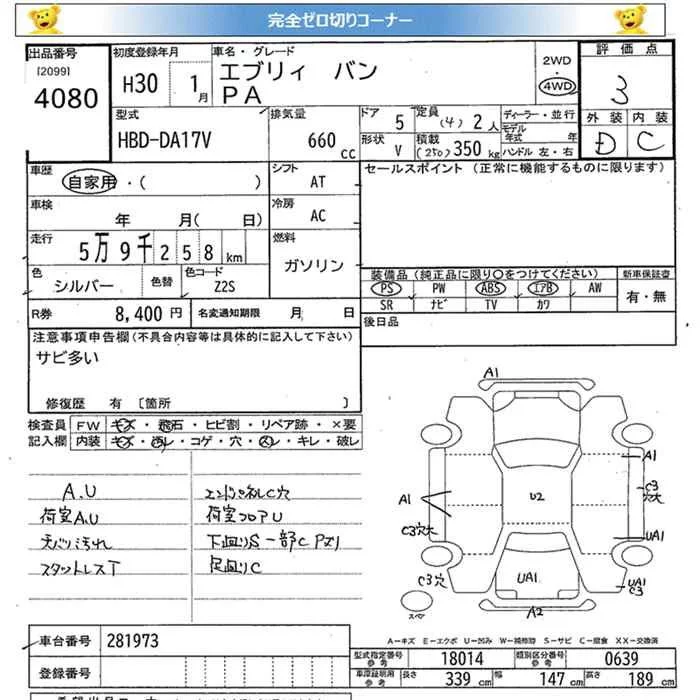 完全ゼロ切りコーナー
出品番号
[2099]
4080
初度登録年月
H30 1月
車名・グレード
エブリィ バン
PA
2WD
4WD
評価点
3
外装 内装
D C
型式
HBD-DA17V
排気量
660 cc
ドア
5
定員
(4) 2人
ディーラー・並行
モデル年式 年
ハンドル 左・右
形状
V
積載
(250) 350 kg
車歴
自家用・( )
シフト
AT
セールスポイント (正常に機能するものに限ります)
車検
年 月( 日)
冷房
AC
走行
5万9千258km
燃料
ガソリン
色
シルバー
色替
色コード
Z2S
装備品 (純正品に限り○をつけてください)
新車保証書
PS PW ABS エアB AW
有・無
SR ナビ TV カワ
R券
8,400 円
名変通知期限 月 日
後日品
注意事項申告欄(不具合内容等は具体的に記入して下さい)
サビ多い
修復歴 有 〔箇所 〕
検査員記入欄
FW キズ・飛石・ヒビ割・リペア跡・×要
内装 キズ・汚レ・コゲ・穴・スレ・キレ・破レ
A.U
荷室A.U
天バリ汚れ
スタットレスT
エンドパネルC穴
荷室フロアU
下廻りS一部C Pズリ
足廻りC
A1
A1
A1
C3穴大
C3
穴大
U2
UA1
C3穴
UA1
UA1
C3
スペア
A2
A-キズ E-エクボ U-凹み W-補修跡 S-サビ C-腐食 XX-交換済
車台番号
281973
登録番号
型式指定番号
参考
18014
類別区分番号
参考
0639
車庫証明用
参考
長さ
339 cm
幅
147 cm
高さ
189 cm